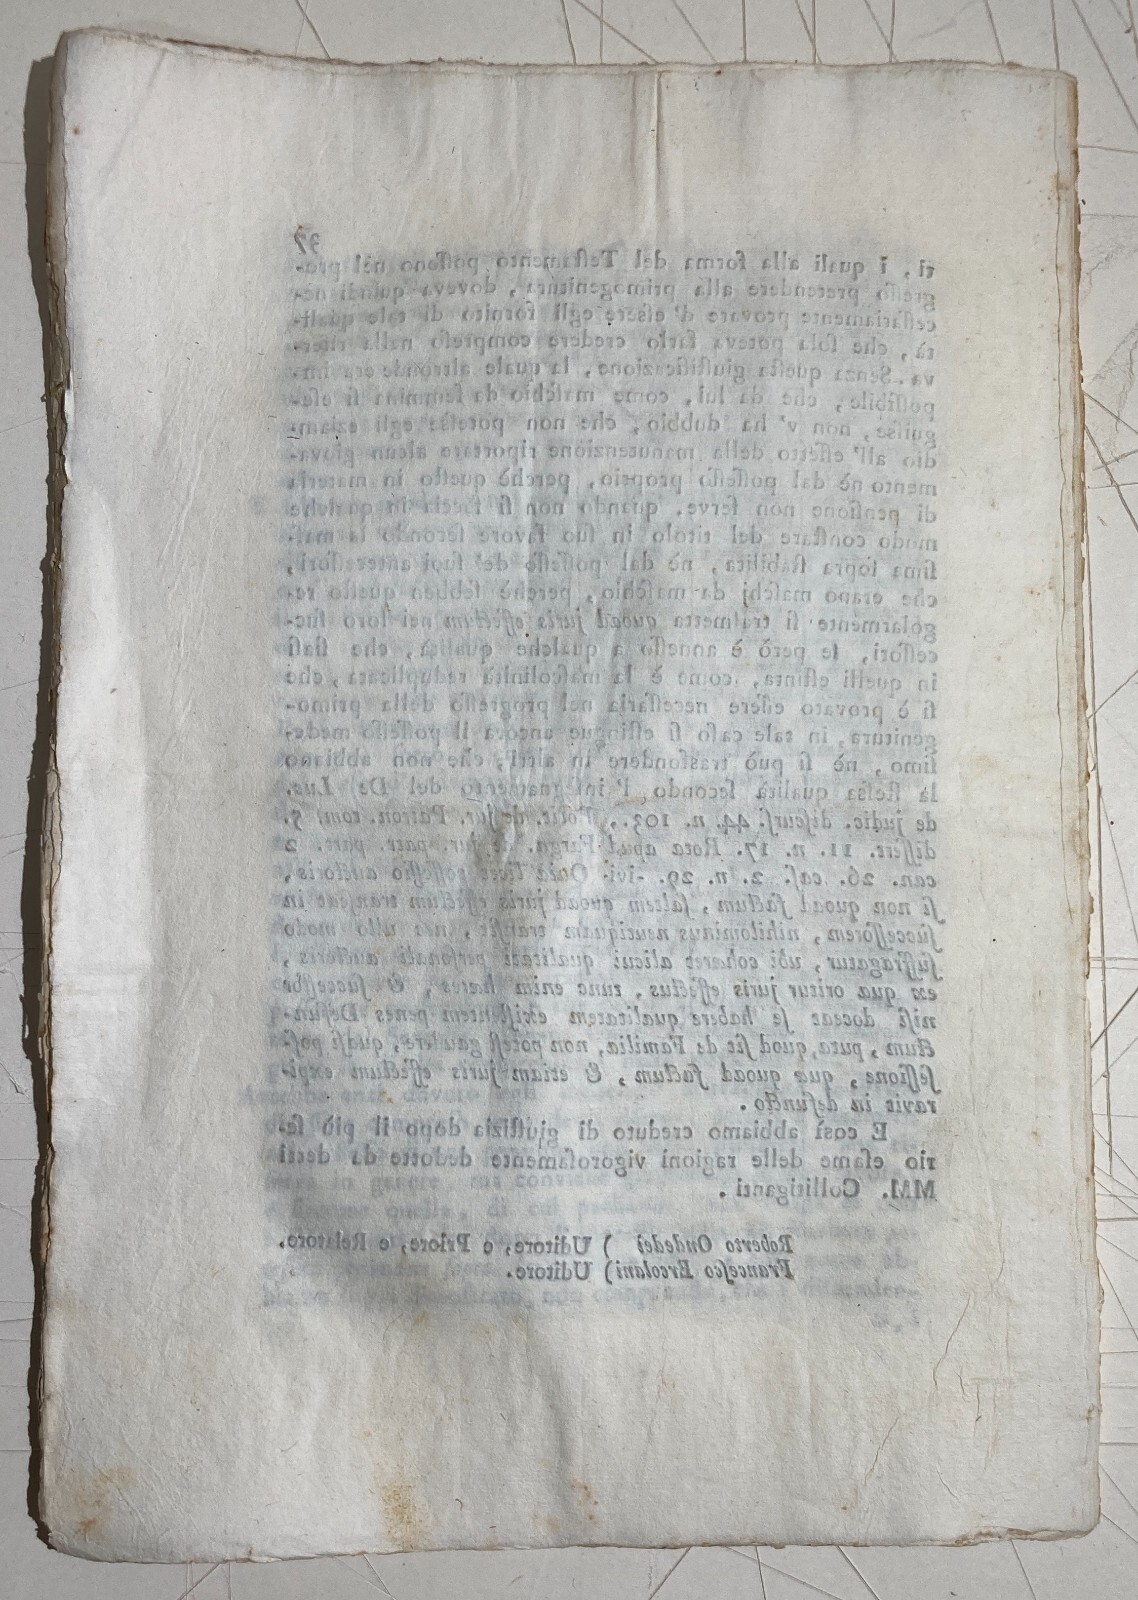 37
ti, i quali alla forma del Teſtamento poſſono nel pro-
greſſo pretendere alla primogenitura, doveva quindi ne-
ceſſariamente provare d' eſſere egli fornito di tale quali-
tà, che ſola poteva farlo credere compreſo nella riſer-
va. Senza queſta giuſtificazione, la quale altronde era im-
poſſibile, che da lui, come maſchio da femmina ſi eſe-
guiſſe, non v' ha dubbio, che non poteſſe egli eziam-
dio all' effetto della manutenzione riportare alcun giova-
mento nè dal poſſeſſo proprio, perchè queſto in materia
di penſione non ſerve, quando non ſi faccia in qualche
modo conſtare del titolo in ſuo favore ſecondo la maſ-
ſima ſopra ſtabilita, nè dal poſſeſſo de' ſuoi anteceſſori,
che erano maſchj da maſchio, perchè ſebben queſto re-
golarmente ſi traſmetta quoad juris effectum nei loro ſuc-
ceſſori, ſe però è anneſſo a qualche qualità, che ſiaſi
in quelli eſtinta, come è la maſcolinità reduplicata, che
ſi è provato eſſere neceſſaria nel progreſſo della primo-
genitura, in tale caſo ſi eſtingue ancora il poſſeſſo mede-
ſimo, nè ſi può trasfondere in altri, che non abbiano
la ſteſſa qualità ſecondo l' inſegnamento del De Luc.
de judic. diſcurſ. 44. n. 103., de jur. Patron. tom. 5.
diſſert. 11. n. 17. Rota apud Farga. de jur. patr. part. 2
can. 26. caſ. 2. n. 29. ivi Quia licet poſſeſſio auctoris,
ſi non quoad factum, ſaltem quoad juris effectum tranſeat in
ſucceſſorem, nihilominus neutiquam tranſit, nec ullo modo
ſuffragatur, ubi coheret alicui qualitati perſonali auctoris,
ex qua oritur juris effectus, tunc enim hæres, & ſucceſſor
niſi doceat ſe habere qualitatem exiſtentem penes Defun-
ctum, puta, quod ſit de Familia, non poteſt gaudere, quaſi poſ-
ſeſſione, quæ quoad factum, & etiam juris effectum expi-
ravit in defuncto.
E così abbiamo creduto di giuſtizia dopo il più ſe-
rio eſame delle ragioni vigoroſamente dedotte da detti
MM. Collitiganti.
Roberto Ondedei ) Uditore, e Priore, e Relatore.
Franceſco Ercolani ) Uditore.